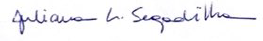 Juliana L. Segadilha